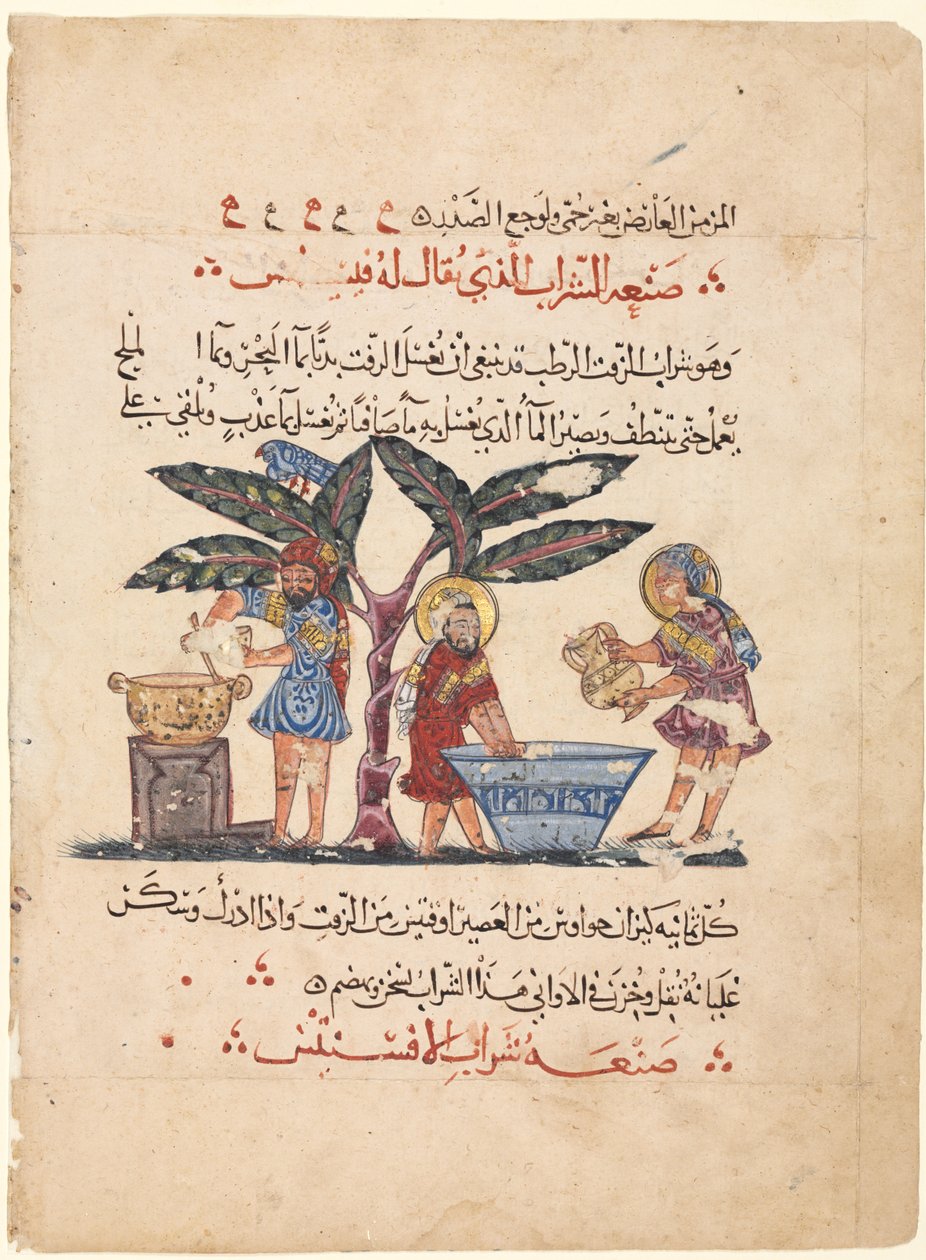 المزمن العارض بغير حمى ولوجع الصدر ه
صنعه الشراب الذي يقال له
وهو شراب الزفت الرطب قد ينبغي ان يغسل الزفت بديًا بمآ البحر وبمآ الملح
يعمل حتى يتنظف ويصير المآ الذي يغسل به مآ صافيًا ثم يغسل بمآ عذب ويلقى على
كل ثمانيه كيزان من العصير اوقيتين من الزفت واذا ادرك وسكن
غليانه نقل وخزن في الاواني هذا الشراب يسخن ويهضم ه
صنعه شراب الافسنتين